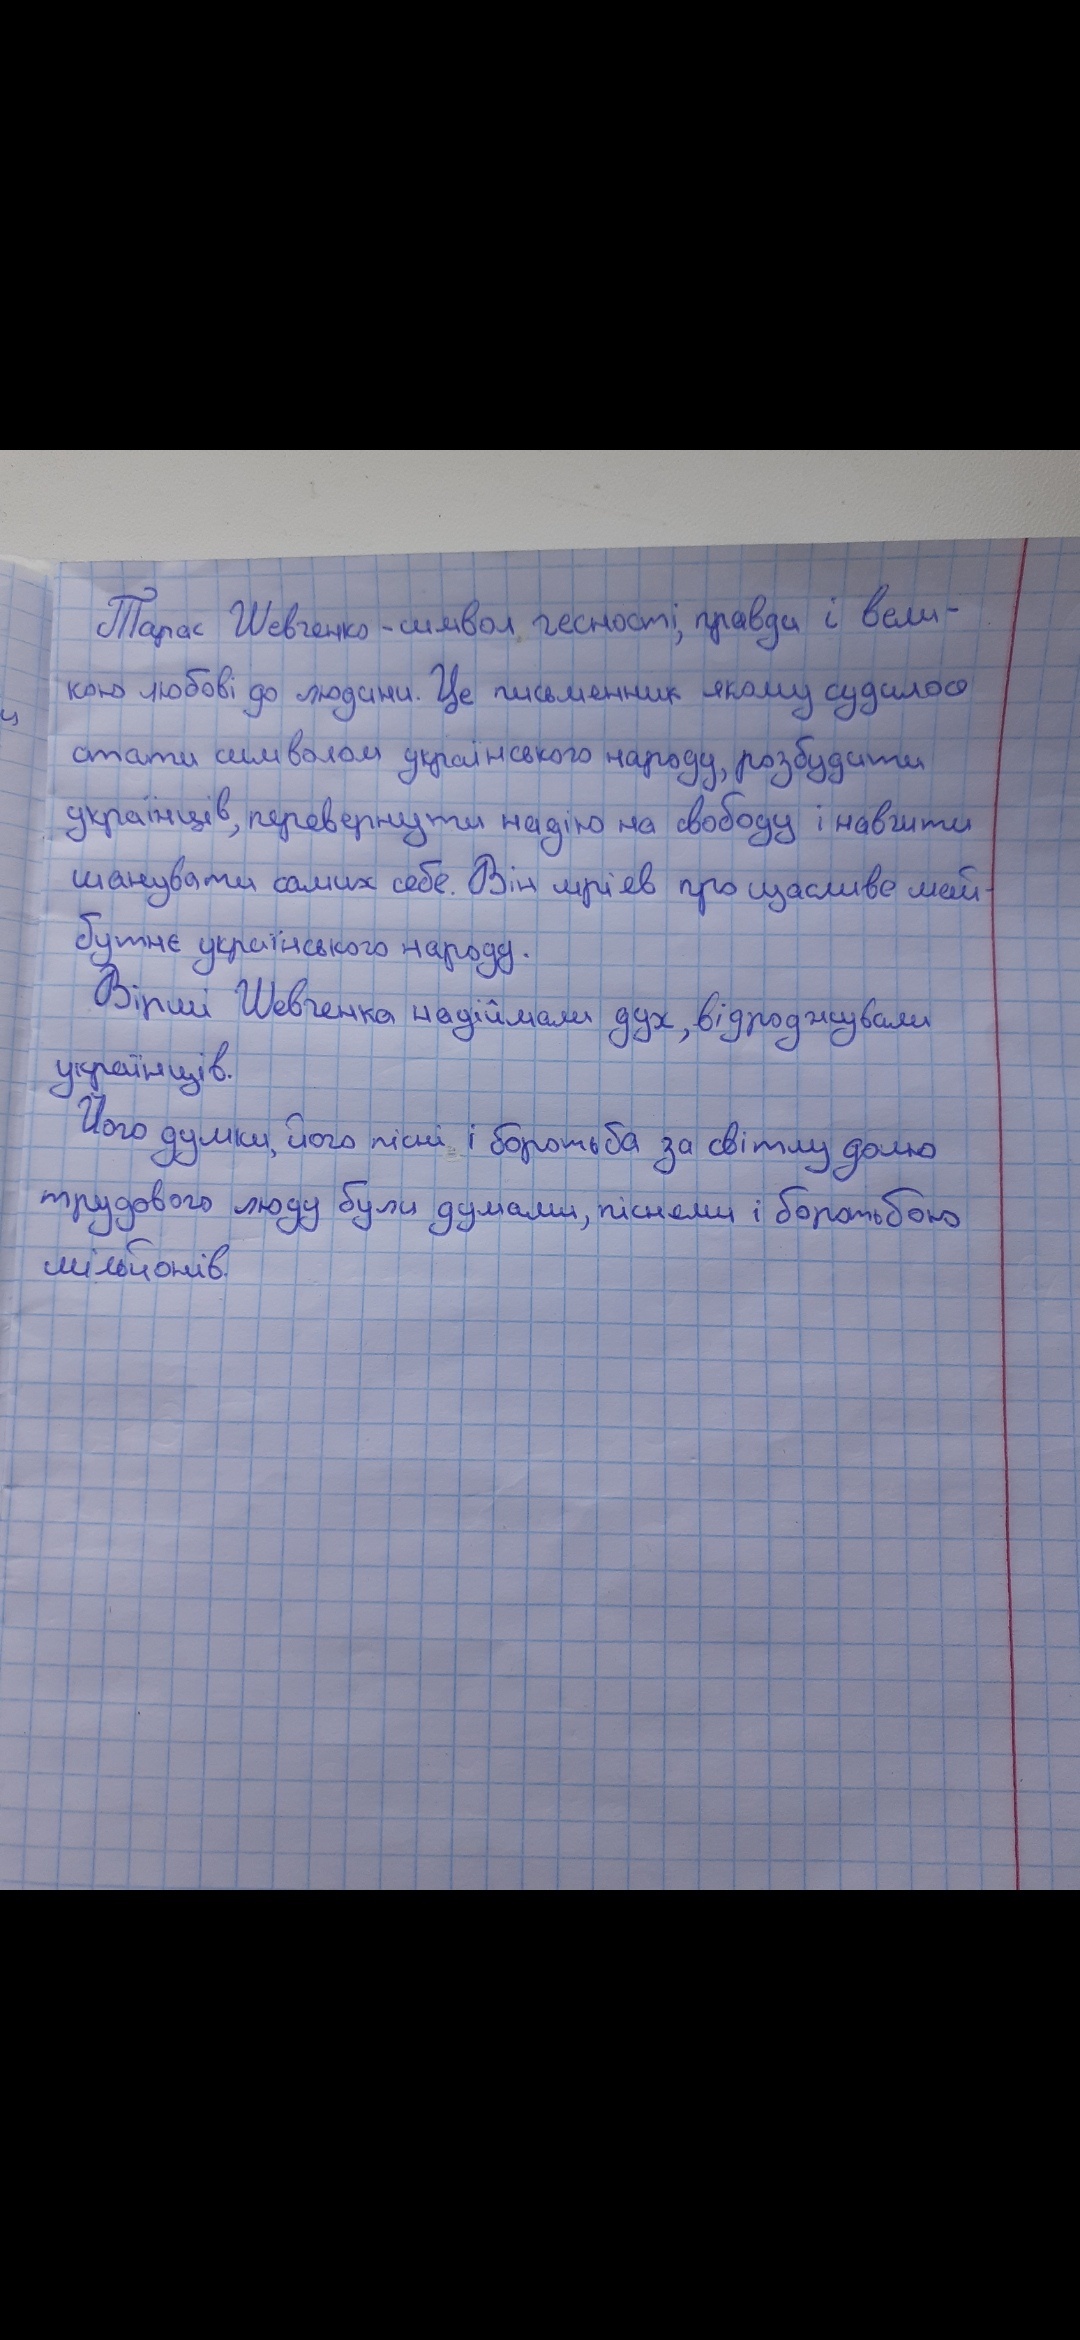 Тарас Шевченко - символ чесності, правди і вели-
кою любові до людини. Це письменник якому судилося
стати символом українського народу, розбудити
українців, перевернути надію на свободу і навчити
шанувати самих себе. Він мріяв про щасливе май-
бутнє українського народу.
Вірші Шевченка надіймали дух, відроджували
українців.
Його думки, його пісні і боротьба за світлу долю
трудового люду були думами, піснями і боротьбою
мільйонів.